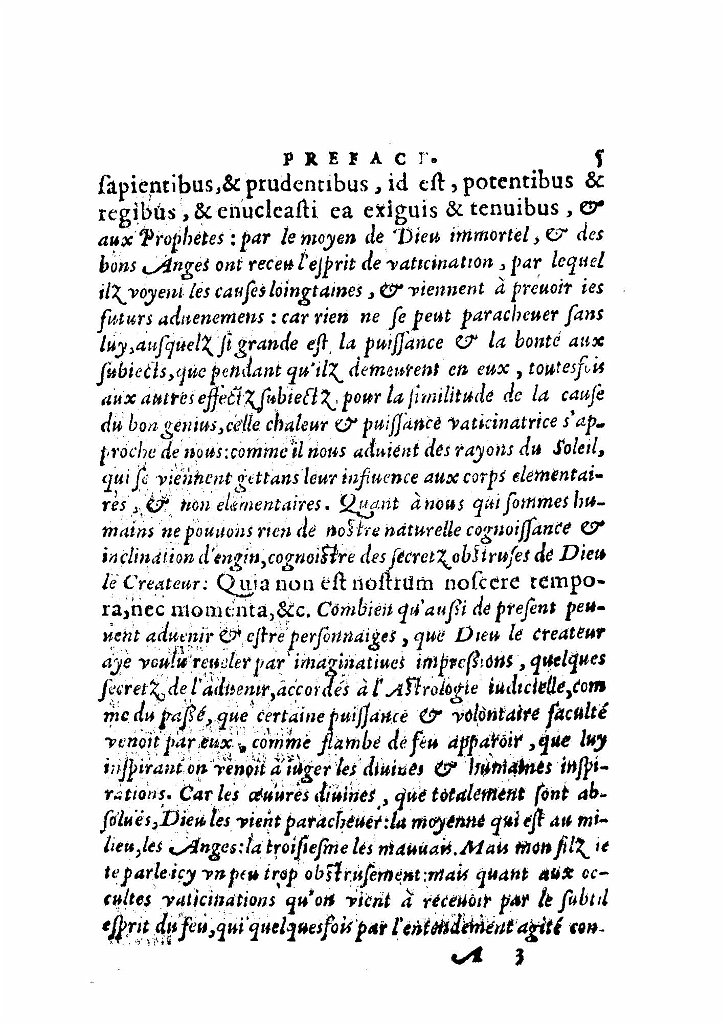 PREFACE. 5
ſapientibus, & prudentibus, id eſt, potentibus &
regibus, & enucleaſti ea exiguis & tenuibus, &
aux Prophetes: par le moyen de Dieu immortel, & des
bons Anges ont receu l'eſprit de vaticination, par lequel
ilz voyent les cauſes loingtaines, & viennent à preuoir les
futurs aduenemens: car rien ne ſe peut paracheuer ſans
luy, auſquelz ſi grande eſt la puiſſance & la bonté aux
ſubiects, que pendant qu'ilz demeurent en eux, toutesfois
aux autres effectz ſubiectz, pour la ſimilitude de la cauſe
du bon genius, celle chaleur & puiſſance vaticinatrice s'ap-
proche de nous: comme il nous aduient des rayons du Soleil,
qui ſe viennent gettans leur influence aux corps elementai-
res, & non elementaires. Quant à nous qui ſommes hu-
mains ne pouuons rien de noſtre naturelle cognoiſſance &
inclination d'engin, cognoiſtre des ſecretz obſtruſes de Dieu
le Createur: Quia non eſt noſtrum noſcere tempo-
ra, nec momenta, &c. Combien qu'auſsi de preſent peu-
uent aduenir & eſtre perſonnaiges, que Dieu le createur
aye voulu reueler par imaginatiues impreſsions, quelques
ſecretz de l'aduenir, accordés à l'Aſtrologie iudicielle, com
me du paſſé, que certaine puiſſance & volontaire faculté
venoit par eux, comme flambe de feu apparoir, que luy
inſpirant on venoit à iuger les diuines & humaines inſpi-
rations. Car les œuures diuines, que totalement ſont ab-
ſolues, Dieu les vient paracheuer: la moyenne qui eſt au mi-
lieu, les Anges: la troiſieſme les mauuais. Mais mon filz ie
te parle icy vn peu trop obſtruſement: mais quant aux oc-
cultes vaticinations qu'on vient à receuoir par le ſubtil
eſprit du feu, qui quelquesfois par l'entendement agité con-
A 3